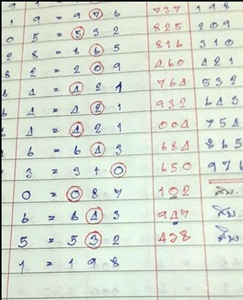 9 = 976 737 198
5 = 532 825 209
8 = 865 816 310
2 = 209 460 421
4 = 421 764 532
4 = 421 932 643
4 = 421 004 754
6 = 643 684 865
3 = 310 650 976
0 = 087 102
6 = 643 947
5 = 532 438
1 = 198